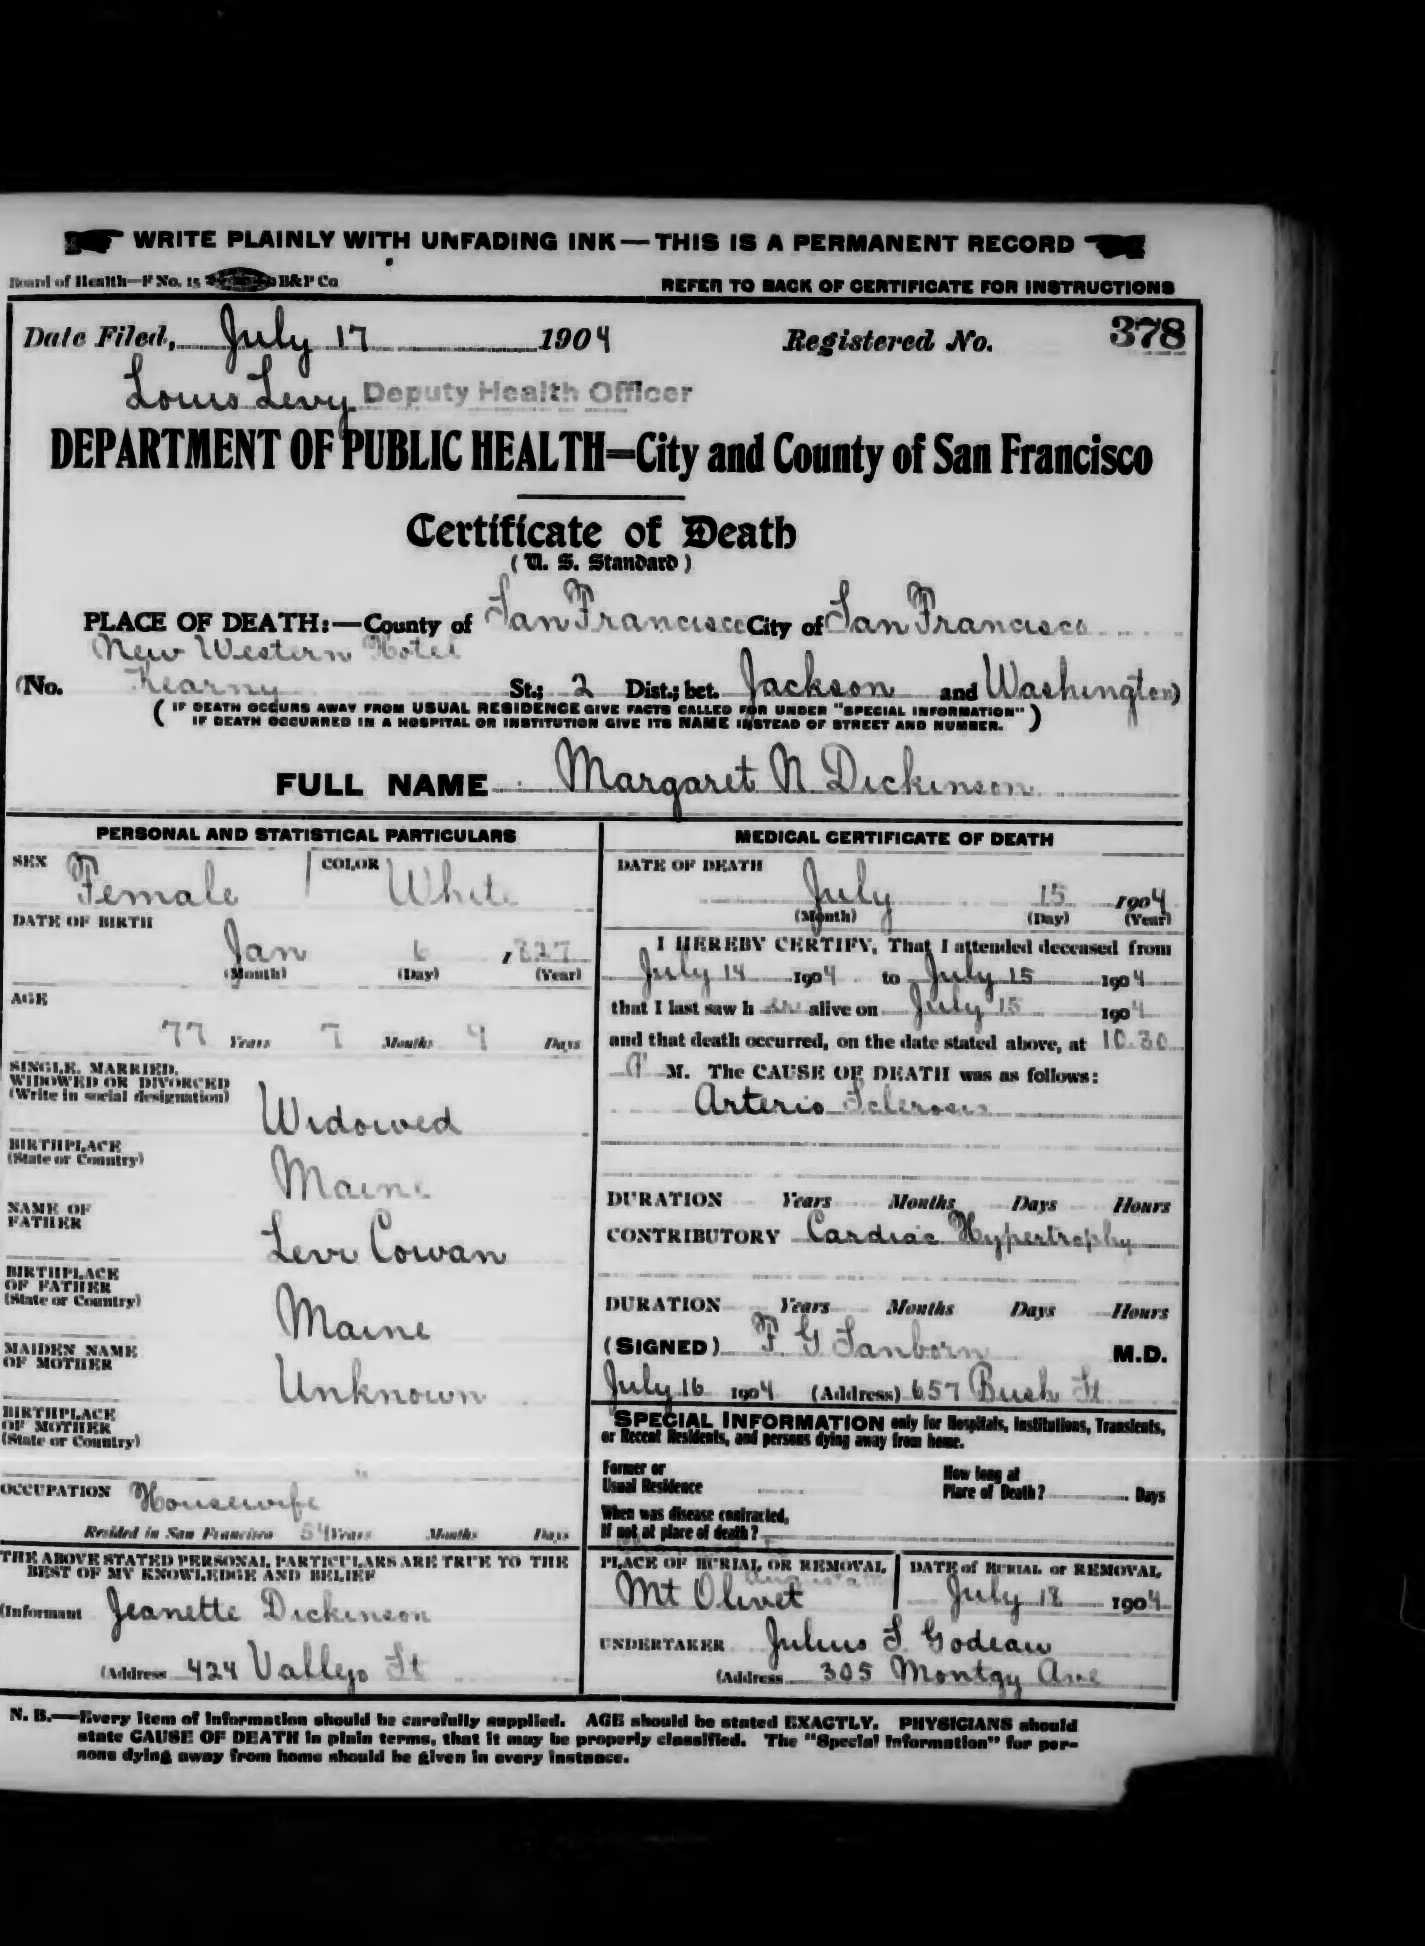 WRITE PLAINLY WITH UNFADING INK—THIS IS A PERMANENT RECORD
Board of Health—F No. 15 B&P Co REFER TO BACK OF CERTIFICATE FOR INSTRUCTIONS
Date Filed, July 17 1904 Registered No. 378
Louis Levy Deputy Health Officer
DEPARTMENT OF PUBLIC HEALTH—City and County of San Francisco
Certificate of Death
(U. S. Standard)
PLACE OF DEATH:—County of San Francisco City of San Francisco
New Western Hotel
(No. Kearny St.; 2 Dist.; bet. Jackson and Washington)
(IF DEATH OCCURS AWAY FROM USUAL RESIDENCE GIVE FACTS CALLED FOR UNDER "SPECIAL INFORMATION"
IF DEATH OCCURRED IN A HOSPITAL OR INSTITUTION GIVE ITS NAME INSTEAD OF STREET AND NUMBER.)
FULL NAME Margaret N Dickinson
PERSONAL AND STATISTICAL PARTICULARS
SEX Female COLOR White
DATE OF BIRTH
Jan 6 1827
(Month) (Day) (Year)
AGE
77 Years 7 Months 9 Days
SINGLE, MARRIED,
WIDOWED OR DIVORCED
(Write in social designation)
Widowed
BIRTHPLACE
(State or Country)
Maine
NAME OF
FATHER
Levi Cowan
BIRTHPLACE
OF FATHER
(State or Country)
Maine
MAIDEN NAME
OF MOTHER
Unknown
BIRTHPLACE
OF MOTHER
(State or Country)
"
OCCUPATION Housewife
Resided in San Francisco 54 Years Months Days
THE ABOVE STATED PERSONAL PARTICULARS ARE TRUE TO THE
BEST OF MY KNOWLEDGE AND BELIEF
(Informant Jeanette Dickinson
(Address 424 Vallejo St
MEDICAL CERTIFICATE OF DEATH
DATE OF DEATH
July 15 1904
(Month) (Day) (Year)
I HEREBY CERTIFY, That I attended deceased from
July 14 1904 to July 15 1904
that I last saw her alive on July 15 1904
and that death occurred, on the date stated above, at 10.30
A M. The CAUSE OF DEATH was as follows:
Arterio Sclerosis
DURATION Years Months Days Hours
CONTRIBUTORY Cardiac Hypertrophy
DURATION Years Months Days Hours
(SIGNED) F G Sanborn M.D.
July 16 1904 (Address) 657 Bush St
SPECIAL INFORMATION only for Hospitals, Institutions, Transients,
or Recent Residents, and persons dying away from home.
Former or
Usual Residence
How long at
Place of Death? Days
When was disease contracted,
If not at place of death?
PLACE OF BURIAL OR REMOVAL
Mt Olivet
DATE of BURIAL or REMOVAL
July 18 1904
UNDERTAKER Julius S Godeau
(Address 305 Montgy Ave
N. B.—Every item of information should be carefully supplied. AGE should be stated EXACTLY. PHYSICIANS should
state CAUSE OF DEATH in plain terms, that it may be properly classified. The "Special Information" for per-
sons dying away from home should be given in every instance.